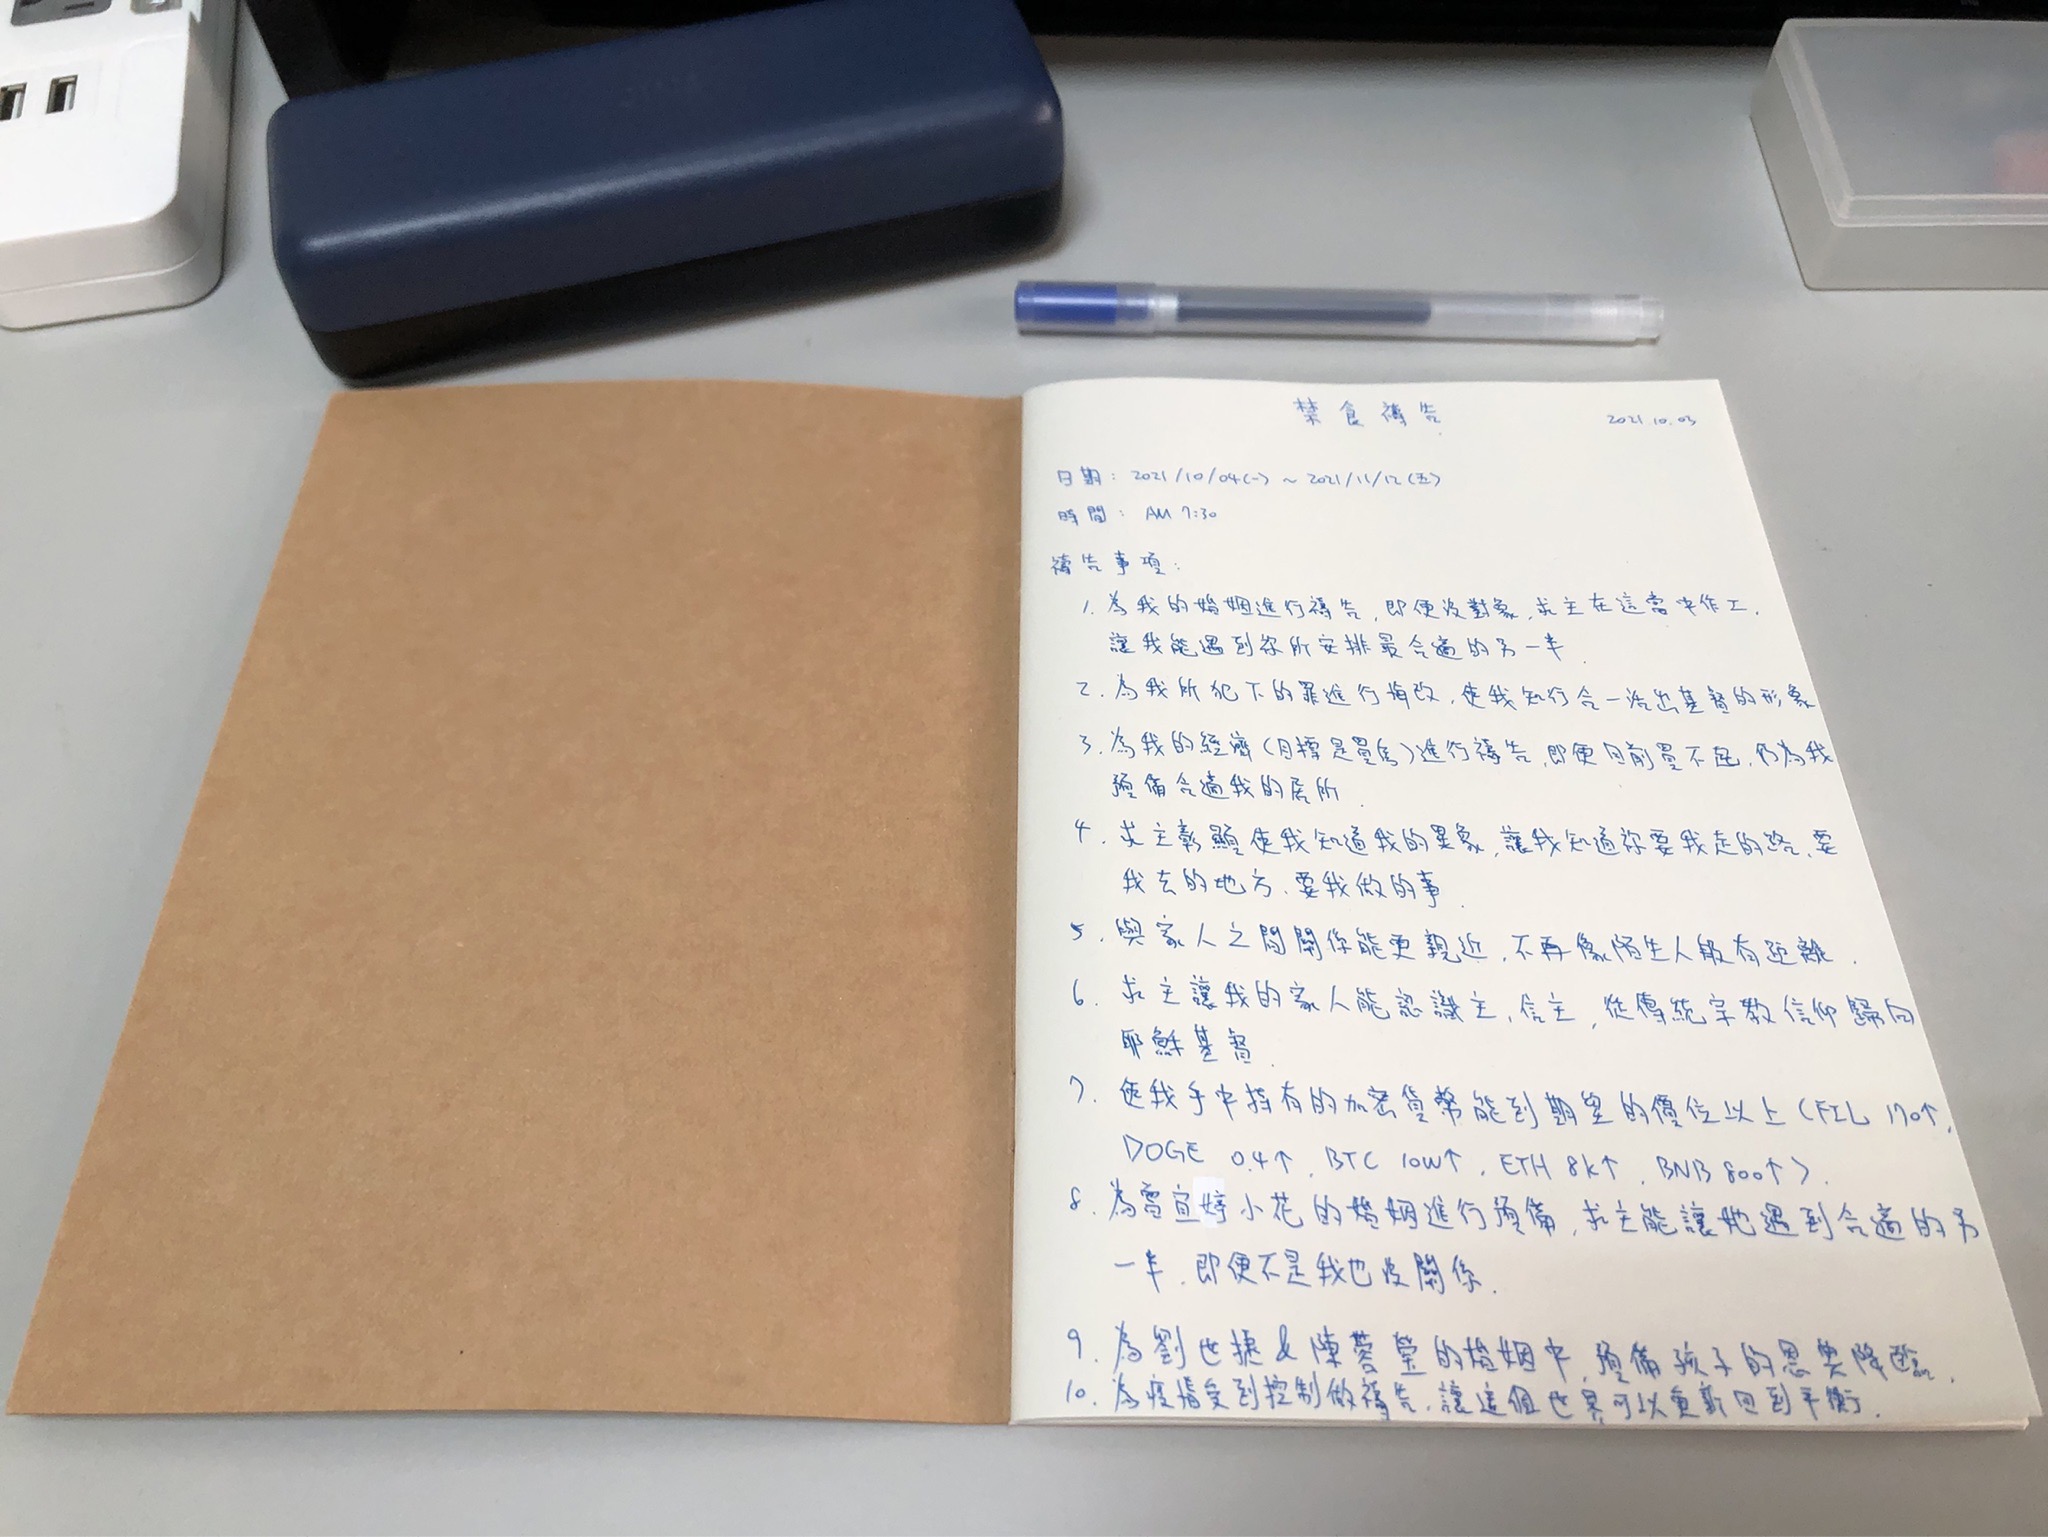 禁食禱告
2021.10.03
日期：2021/10/04(一) ~ 2021/11/12(五)
時間：AM 7:30
禱告事項：
1. 為我的婚姻進行禱告，即便沒對象，求主在這當中作工，
讓我能遇到祢所安排最合適的另一半．
2. 為我所犯下的罪進行悔改，使我知行合一活出基督的形象
3. 為我的經濟(目標是買房)進行禱告，即便目前買不起，仍為我
預備合適我的居所．
4. 求主彰顯使我知道我的異象，讓我知道祢要我走的路、要
我去的地方、要我做的事．
5. 與家人之間關係能更親近，不再像陌生人般有距離．
6. 求主讓我的家人能認識主，信主，從傳統宗教信仰歸向
耶穌基督．
7. 使我手中持有的加密貨幣能到期望的價位以上(FIL 170↑，
DOGE 0.4↑，BTC 10W↑，ETH 8K↑，BNB 800↑)．
8. 為雪宜婷小花的婚姻進行預備，求主能讓她遇到合適的另
一半，即便不是我也沒關係．
9. 為劉世捷&陳蓉瑩的婚姻中，預備孩子的恩典降臨．
10. 為疫情受到控制做禱告，讓這個世界可以更新回到平衡．